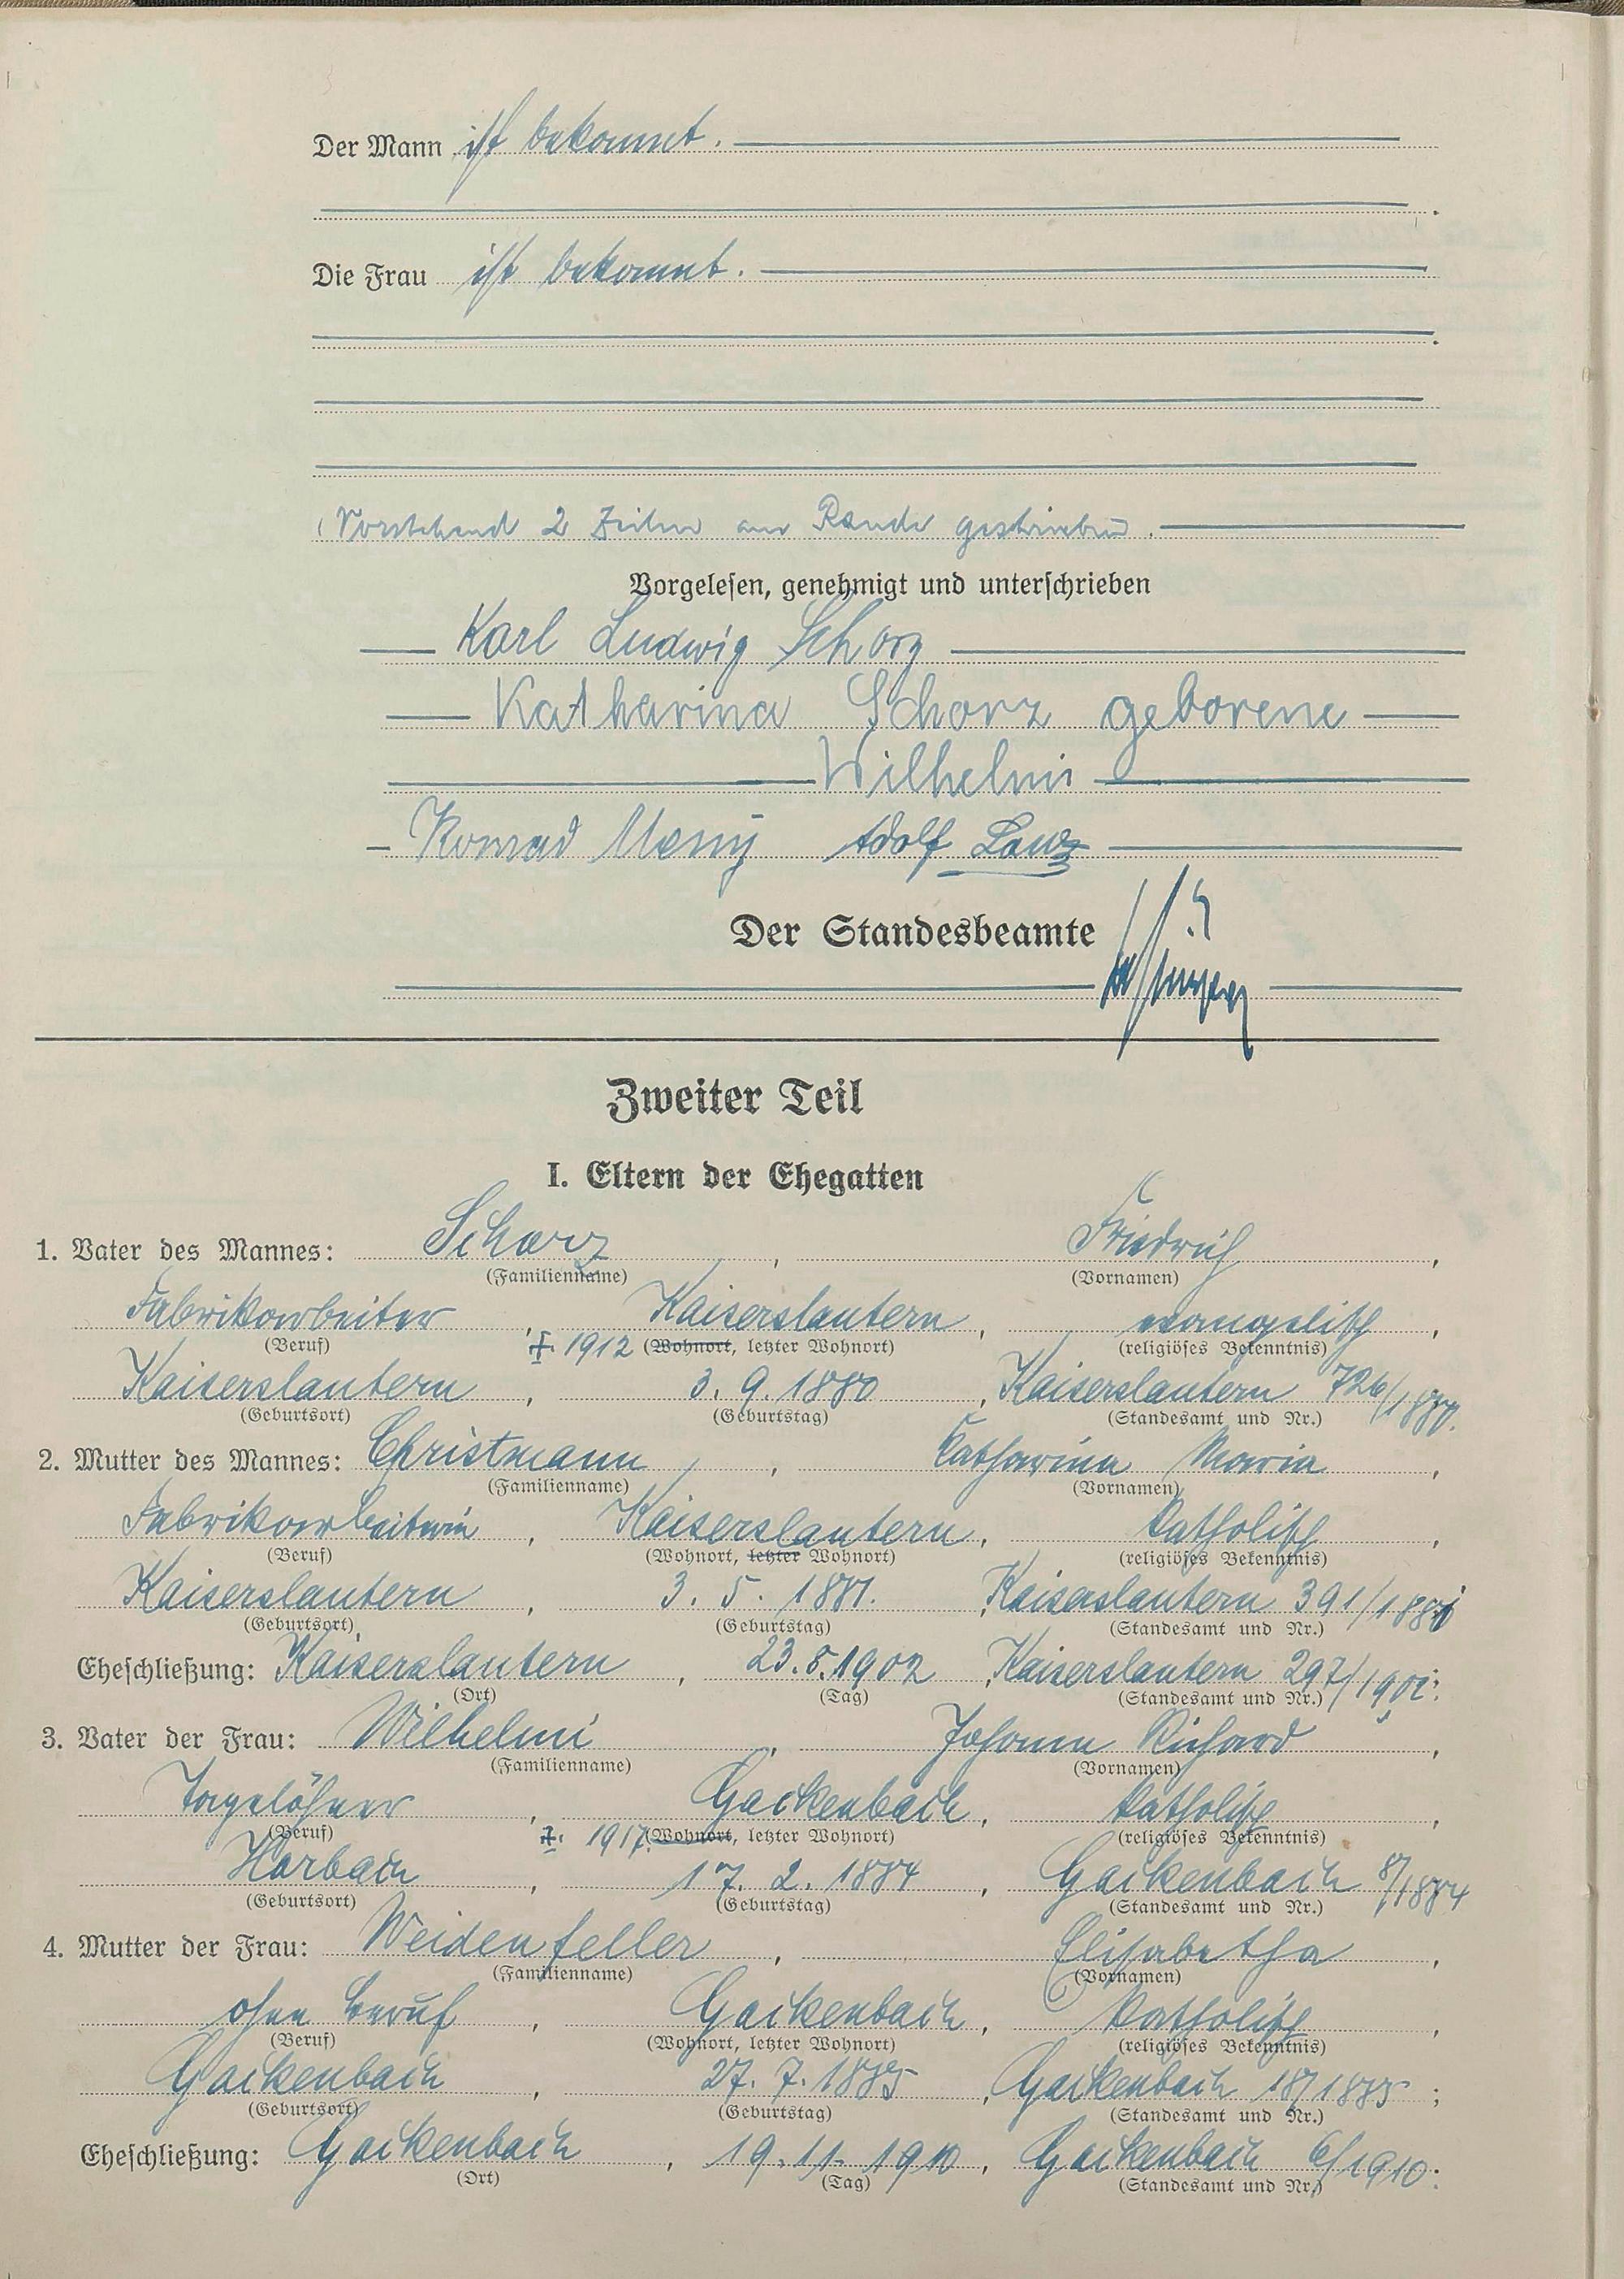 Der Mann ist bekannt.
Die Frau ist bekannt.
Vorstehend 2 Zeilen am Rande gestrichen.
Vorgelesen, genehmigt und unterschrieben
Karl Ludwig Schorz
Katharina Schorz geborene
Wilhelmi
Konrad Adolf
Der Standesbeamte
Zweiter Teil
I. Eltern der Ehegatten
1. Vater des Mannes: Schorz, Friedrich,
(Familienname) (Vornamen)
Fabrikarbeiter, Kaiserslautern, evangelisch,
(Beruf) †. 1912 (Wohnort, letzter Wohnort) (religiöses Bekenntnis)
Kaiserslautern, 3. 9. 1880, Kaiserslautern 726/1880.
(Geburtsort) (Geburtstag) (Standesamt und Nr.)
2. Mutter des Mannes: Christmann, Katharina Maria,
(Familienname) (Vornamen)
Fabrikarbeiterin, Kaiserslautern, katholisch,
(Beruf) (Wohnort, letzter Wohnort) (religiöses Bekenntnis)
Kaiserslautern, 3. 5. 1881. Kaiserslautern 391/1881
(Geburtsort) (Geburtstag) (Standesamt und Nr.)
Eheschließung: Kaiserslautern, 23.8.1902, Kaiserslautern 297/1902;
(Ort) (Tag) (Standesamt und Nr.)
3. Vater der Frau: Wilhelmi, Johann Richard,
(Familienname) (Vornamen)
Tagelöhner, Gackenbach, katholisch,
(Beruf) †. 1917. (Wohnort, letzter Wohnort) (religiöses Bekenntnis)
Horbach, 17. 2. 1884, Gackenbach 8/1884
(Geburtsort) (Geburtstag) (Standesamt und Nr.)
4. Mutter der Frau: Weidenfeller, Elisabetha,
(Familienname) (Vornamen)
ohne Beruf, Gackenbach, katholisch,
(Beruf) (Wohnort, letzter Wohnort) (religiöses Bekenntnis)
Gackenbach, 27. 7. 1885, Gackenbach 18/1885;
(Geburtsort) (Geburtstag) (Standesamt und Nr.)
Eheschließung: Gackenbach, 19. 11. 1910, Gackenbach 6/1910.
(Ort) (Tag) (Standesamt und Nr.)